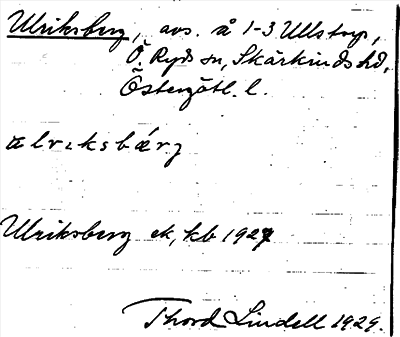 Ulriksberg, avs. å 1-3 Ullstorp,
Ö. Ryds sn, Skärkinds hd,
Östergötl. l.
Ulriksberg ek, kb 1927
Thord Lindell 1929.